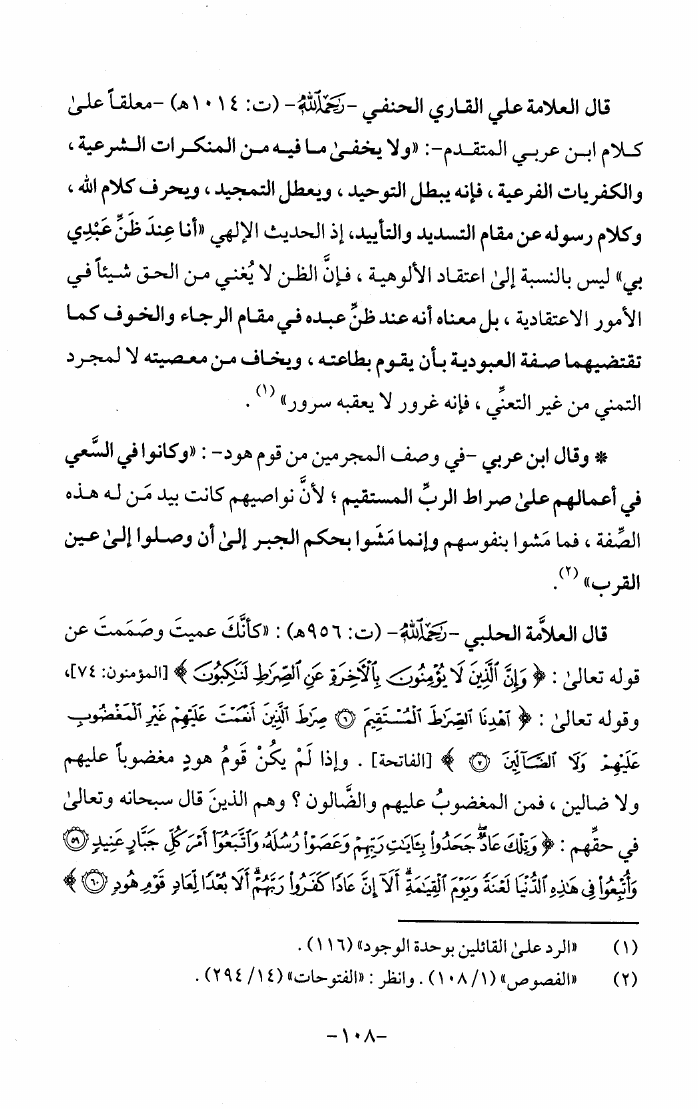 قال العلامة علي القاري الحنفي -رَحِمَهُ ٱللَّهُ- (ت: ١٠١٤هـ) -معلقاً علىٰ
كلام ابن عربي المتقدم-: «ولا يخفىٰ ما فيه من المنكرات الشرعية ،
والكفريات الفرعية ، فإنه يبطل التوحيد ، ويعطل التمجيد ، ويحرف كلام الله ،
وكلام رسوله عن مقام التسديد والتأييد، إذ الحديث الإلهي «أنا عِندَ ظَنِّ عَبْدِي
بي» ليس بالنسبة إلىٰ اعتقاد الألوهية ، فإنَّ الظن لا يُغني من الحق شيئاً في
الأمور الاعتقادية ، بل معناه أنه عند ظنِّ عبده في مقام الرجاء والخوف كما
تقتضيهما صفة العبودية بأن يقوم بطاعته ، ويخاف من معصيته لا لمجرد
التمني من غير التعنِّي ، فإنه غرور لا يعقبه سرور» (١) .
* وقال ابن عربي -في وصف المجرمين من قوم هود- : «وكانوا في السَّعي
في أعمالهم علىٰ صراط الربِّ المستقيم ؛ لأنَّ نواصيهم كانت بيد مَن له هذه
الصِّفة ، فما مَشوا بنفوسهم وإنما مَشَوا بحكم الجبر إلىٰ أن وصلوا إلىٰ عين
القرب» (٢).
قال العلاَّمة الحلبي -رَحِمَهُ ٱللَّهُ- (ت: ٩٥٦هـ) : «كأنَّكَ عميتَ وصَمَمتَ عن
قوله تعالىٰ : ﴿ وَإِنَّ ٱلَّذِينَ لَا يُؤْمِنُونَ بِٱلْأَخِرَةِ عَنِ ٱلصِّرَٰطِ لَنَٰكِبُونَ ﴾ [المؤمنون: ٧٤]،
وقوله تعالىٰ : ﴿ ٱهْدِنَا ٱلصِّرَٰطَ ٱلْمُسْتَقِيمَ ٦ صِرَٰطَ ٱلَّذِينَ أَنْعَمْتَ عَلَيْهِمْ غَيْرِ ٱلْمَغْضُوبِ
عَلَيْهِمْ وَلَا ٱلضَّآلِّينَ ٧ ﴾ [الفاتحة] . وإذا لَمْ يكُنْ قَومُ هودٍ مغضوباً عليهم
ولا ضالين ، فمن المغضوبُ عليهم والضَّالون ؟ وهم الذينَ قال سبحانه وتعالىٰ
في حقِّهم : ﴿ وَتِلْكَ عَادٌ جَحَدُوا۟ بِـَٔايَٰتِ رَبِّهِمْ وَعَصَوْا۟ رُسُلَهُۥ وَٱتَّبَعُوٓا۟ أَمْرَ كُلِّ جَبَّارٍ عَنِيدٍ ٥٩
وَأُتْبِعُوا۟ فِى هَٰذِهِ ٱلدُّنْيَا لَعْنَةً وَيَوْمَ ٱلْقِيَٰمَةِ أَلَآ إِنَّ عَادًا كَفَرُوا۟ رَبَّهُمْ أَلَا بُعْدًا لِّعَادٍ قَوْمِ هُودٍ ٦٠ ﴾
(١) «الرد علىٰ القائلين بوحدة الوجود» (١١٦) .
(٢) «الفصوص» (١٠٨/١) . وانظر : «الفتوحات» (٢٩٤/١٤) .
-١٠٨-